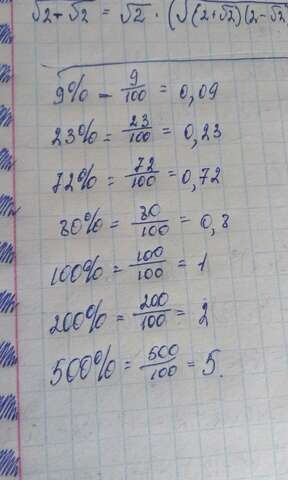 √2+√2 = √2 · (√(2+√2)(2-√2)
9% - 9/100 = 0,09
23% = 23/100 = 0,23
72% = 72/100 = 0,72
80% = 80/100 = 0,8
100% = 100/100 = 1
200% = 200/100 = 2
500% = 500/100 = 5.